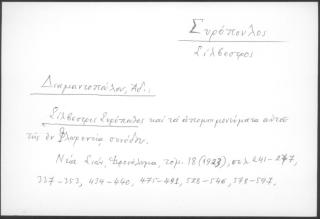 Συρόπουλος
Σίλβεστρος
Διαμαντοπούλου, Ἀδ.:
Σίλβεστρος Συρόπουλος καὶ τὰ ἀπομνημονεύματα αὐτοῦ
τῆς ἐν Φλωρεντίᾳ συνόδου.
Νέα Σιών, Ἱεροσόλυμα, τόμ. 18 (1923), σελ. 241-277,
337-353, 434-440, 475-491, 528-546, 578-597.